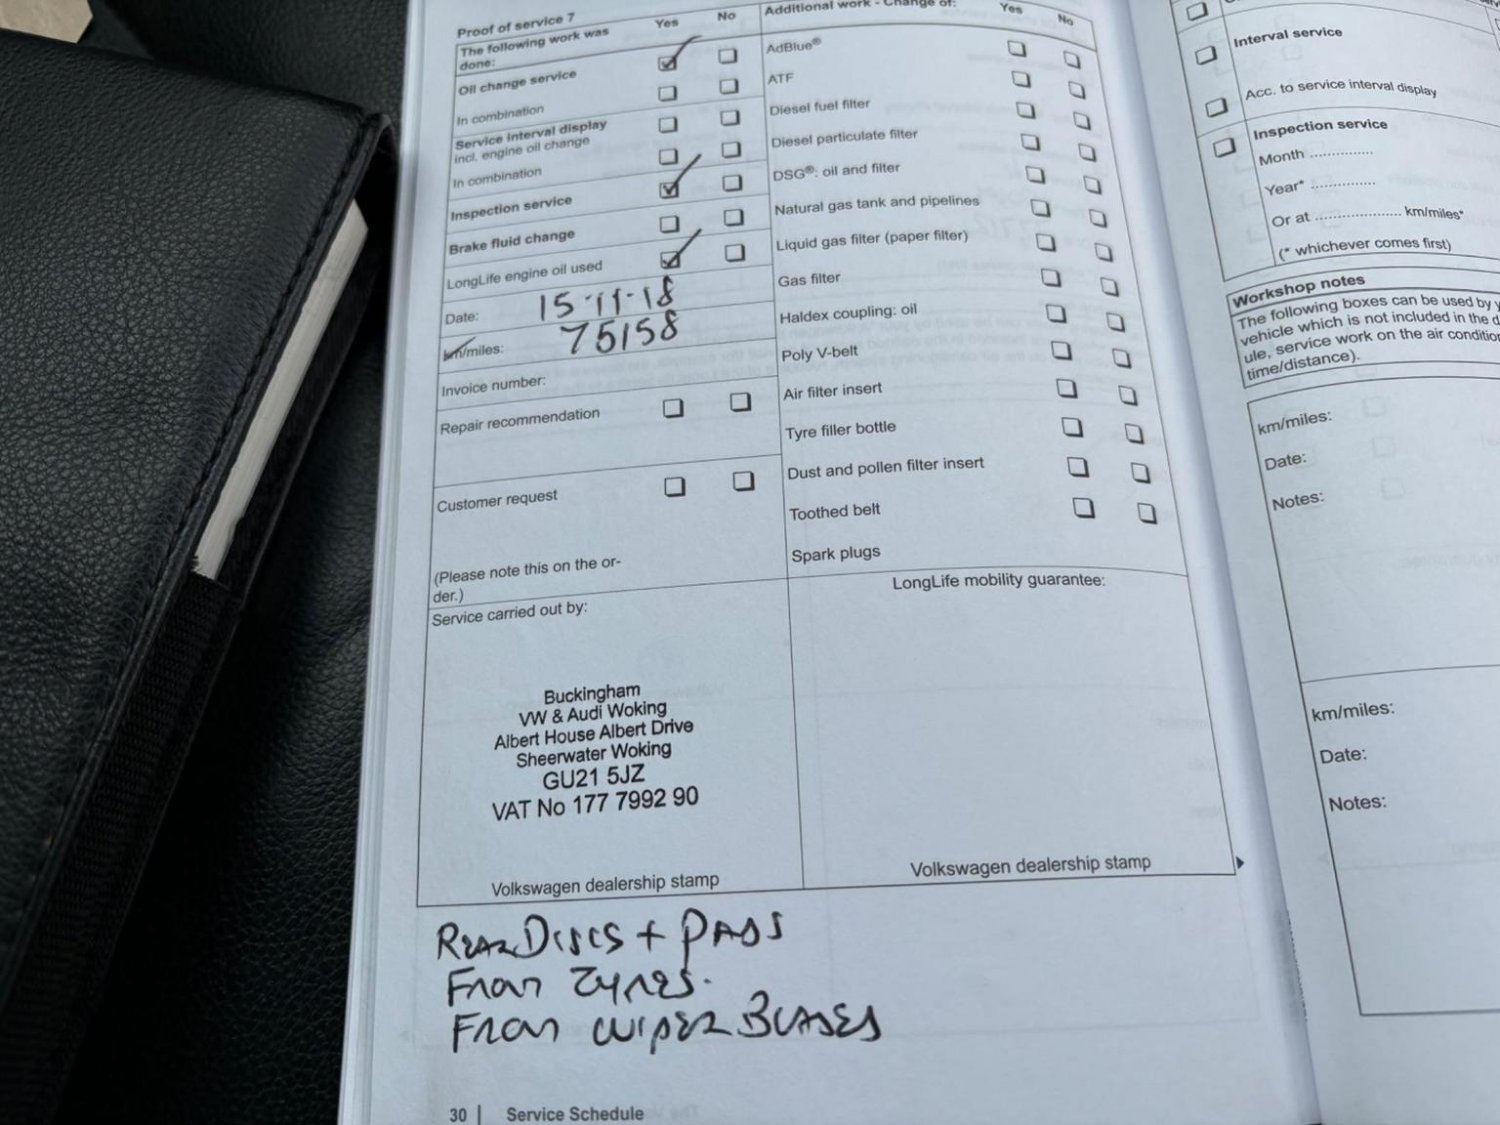 Proof of service 7
Yes
No
The following work was
done:
Oil change service
In combination
Service interval display
incl. engine oil change
In combination
Inspection service
Brake fluid change
LongLife engine oil used
Date: 15·11·18
km/miles: 75158
Invoice number:
Repair recommendation
Customer request
(Please note this on the or-
der.)
Additional work - Change of:
Yes
No
AdBlue®
ATF
Diesel fuel filter
Diesel particulate filter
DSG®: oil and filter
Natural gas tank and pipelines
Liquid gas filter (paper filter)
Gas filter
Haldex coupling: oil
Poly V-belt
Air filter insert
Tyre filler bottle
Dust and pollen filter insert
Toothed belt
Spark plugs
Service carried out by:
Buckingham
VW & Audi Woking
Albert House Albert Drive
Sheerwater Woking
GU21 5JZ
VAT No 177 7992 90
Volkswagen dealership stamp
LongLife mobility guarantee:
Volkswagen dealership stamp
REAR DISCS + PADS
FRONT TYRES.
FRONT WIPER BLADES
30 | Service Schedule
Interval service
Acc. to service interval display
Inspection service
Month ..............
Year* ..............
Or at .................... km/miles*
(* whichever comes first)
Workshop notes
The following boxes can be used by
vehicle which is not included in the
ule, service work on the air
time/distance).
km/miles:
Date:
Notes:
km/miles:
Date:
Notes: